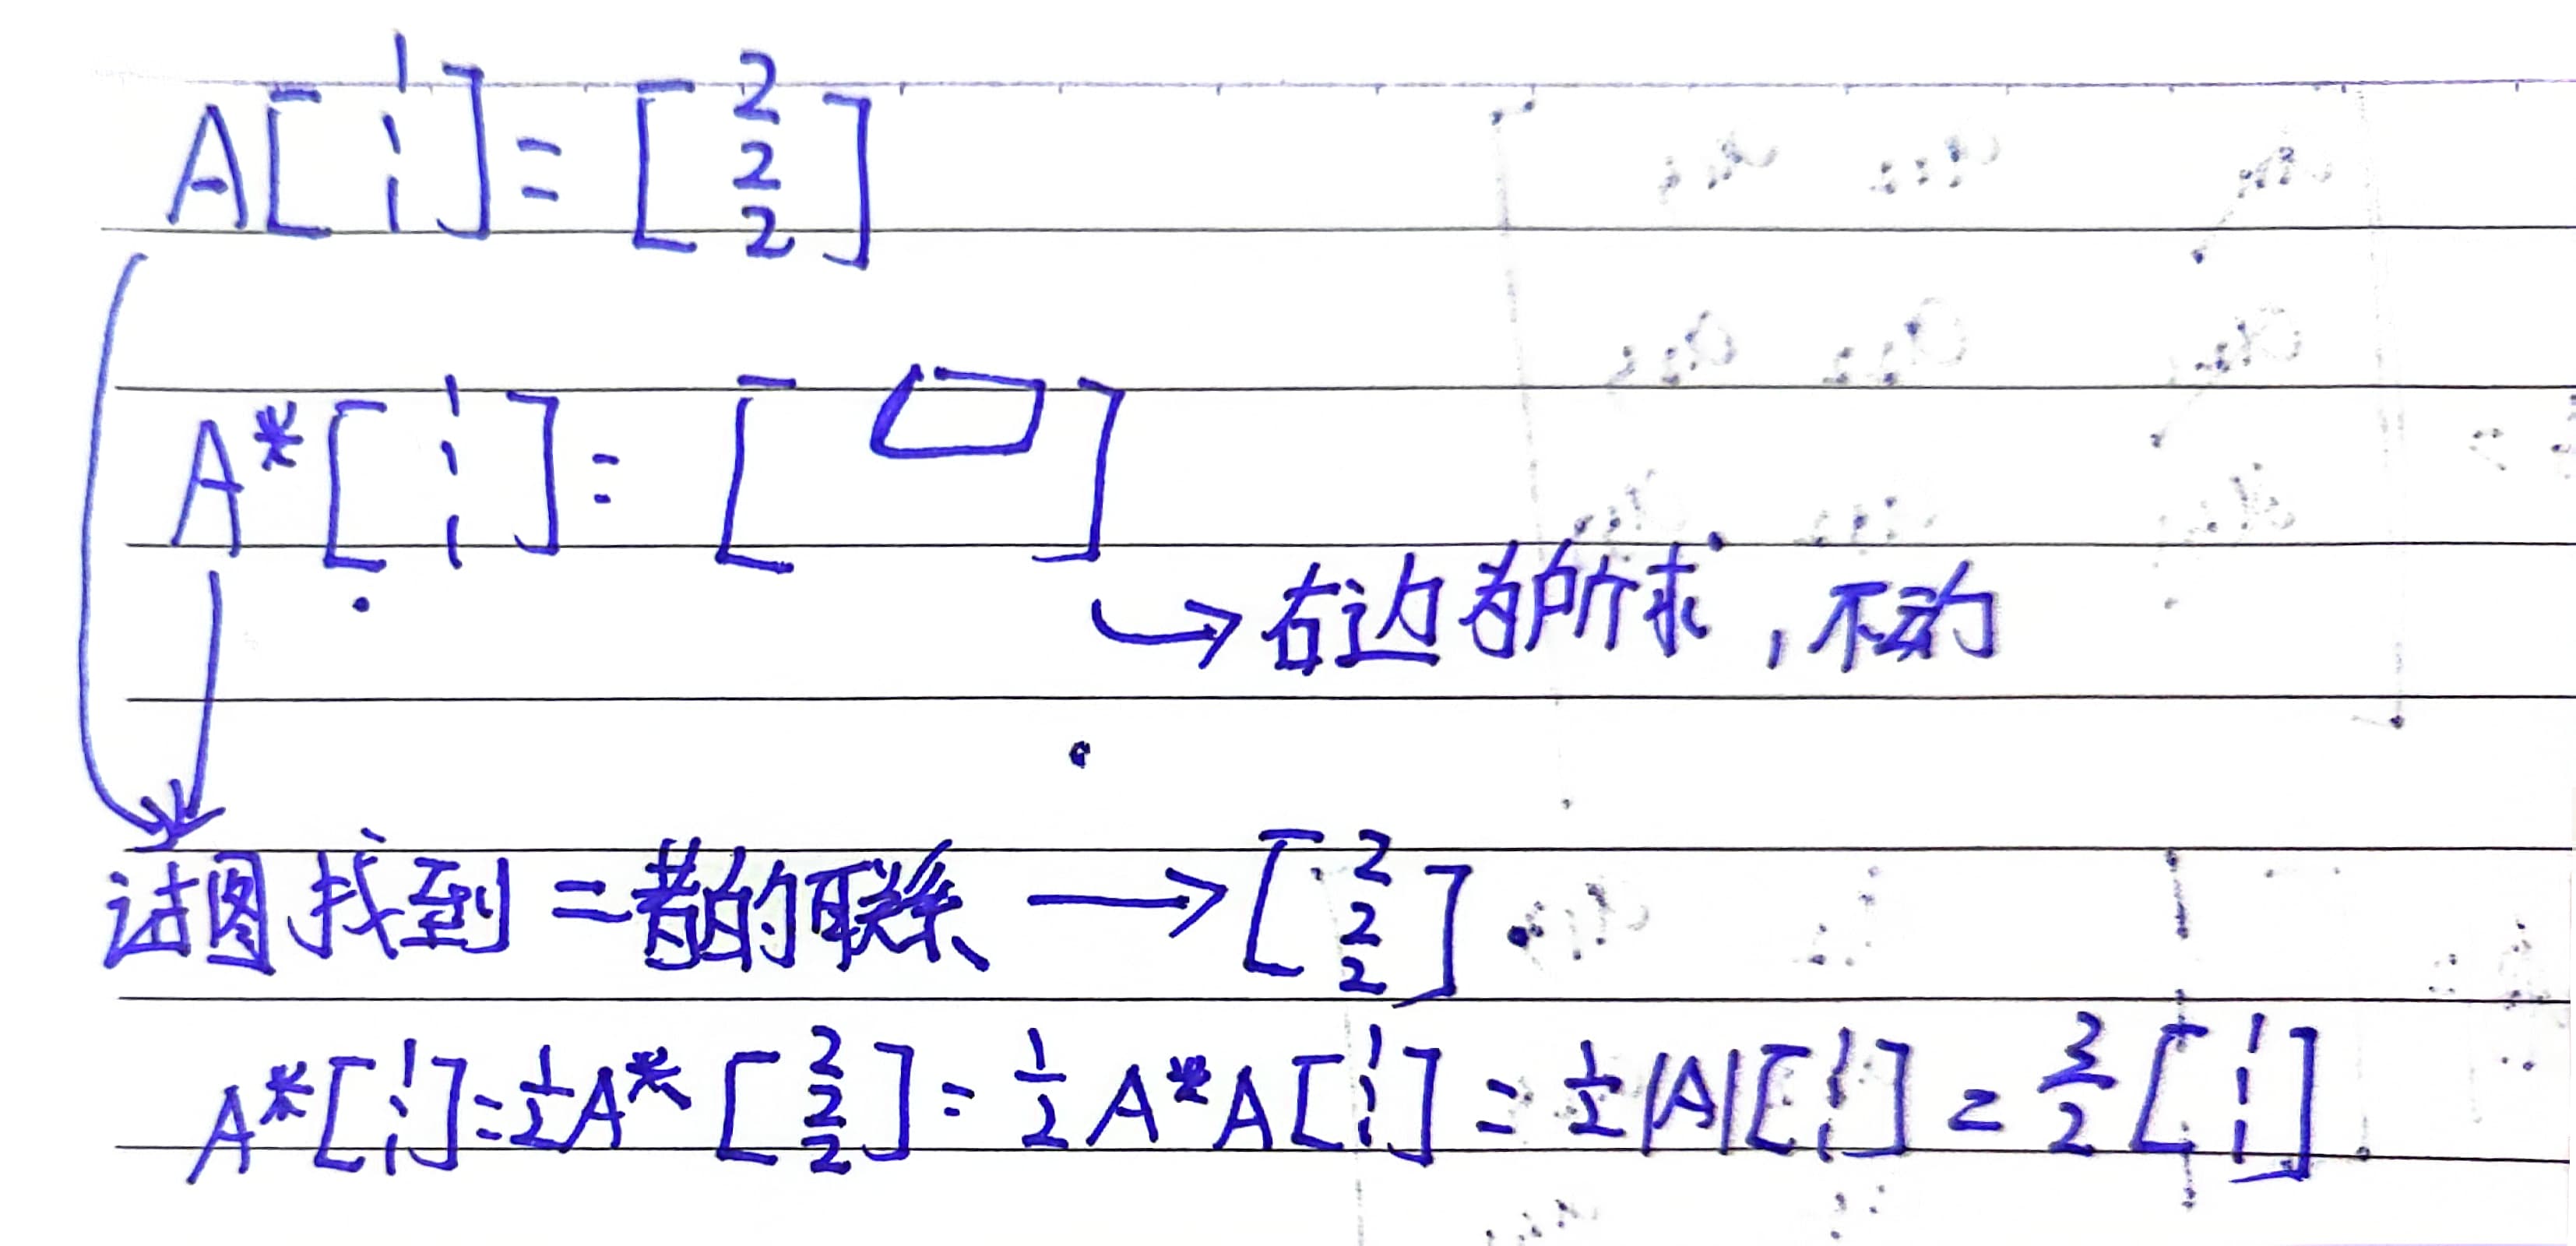 A[1 1 1] = [2 2 2]
A*[1 1 1] = [ ▭ ]
→右边为所求,不动
试图找到二者的联系 → [2 2 2]
A*[1 1 1] = 1/2 A*[2 2 2] = 1/2 A*A[1 1 1] = 1/2 |A|[1 1 1] = 3/2 [1 1 1]